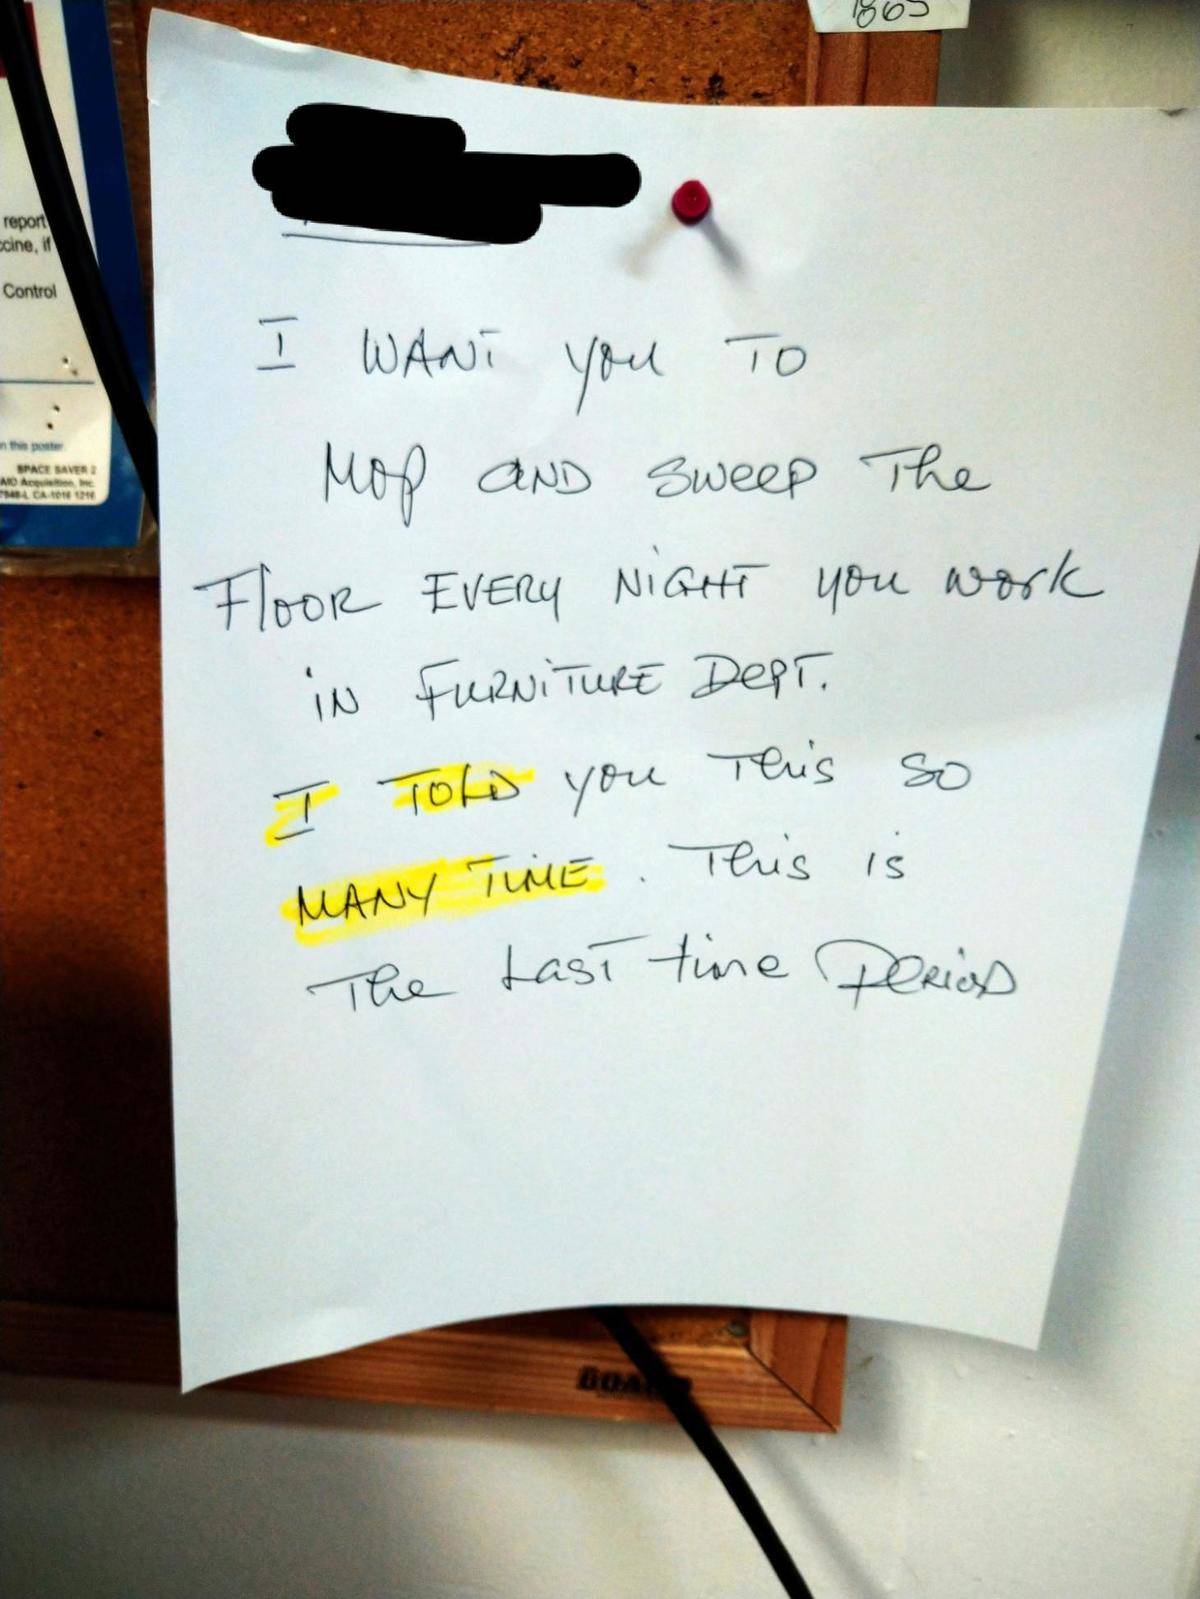 1865
report
ccine, if
Control
n this poster.
SPACE SAVER 2
AIO Acquisition, Inc.
CA-1016 1216
I WANT you TO
MOP AND SWEEP The
FlOOR EVERY NIGHT you work
iN FURNiTURE DEPT.
I TOLD you This SO
MANY TIME. This is
The LAST time PERIOD
BOARD